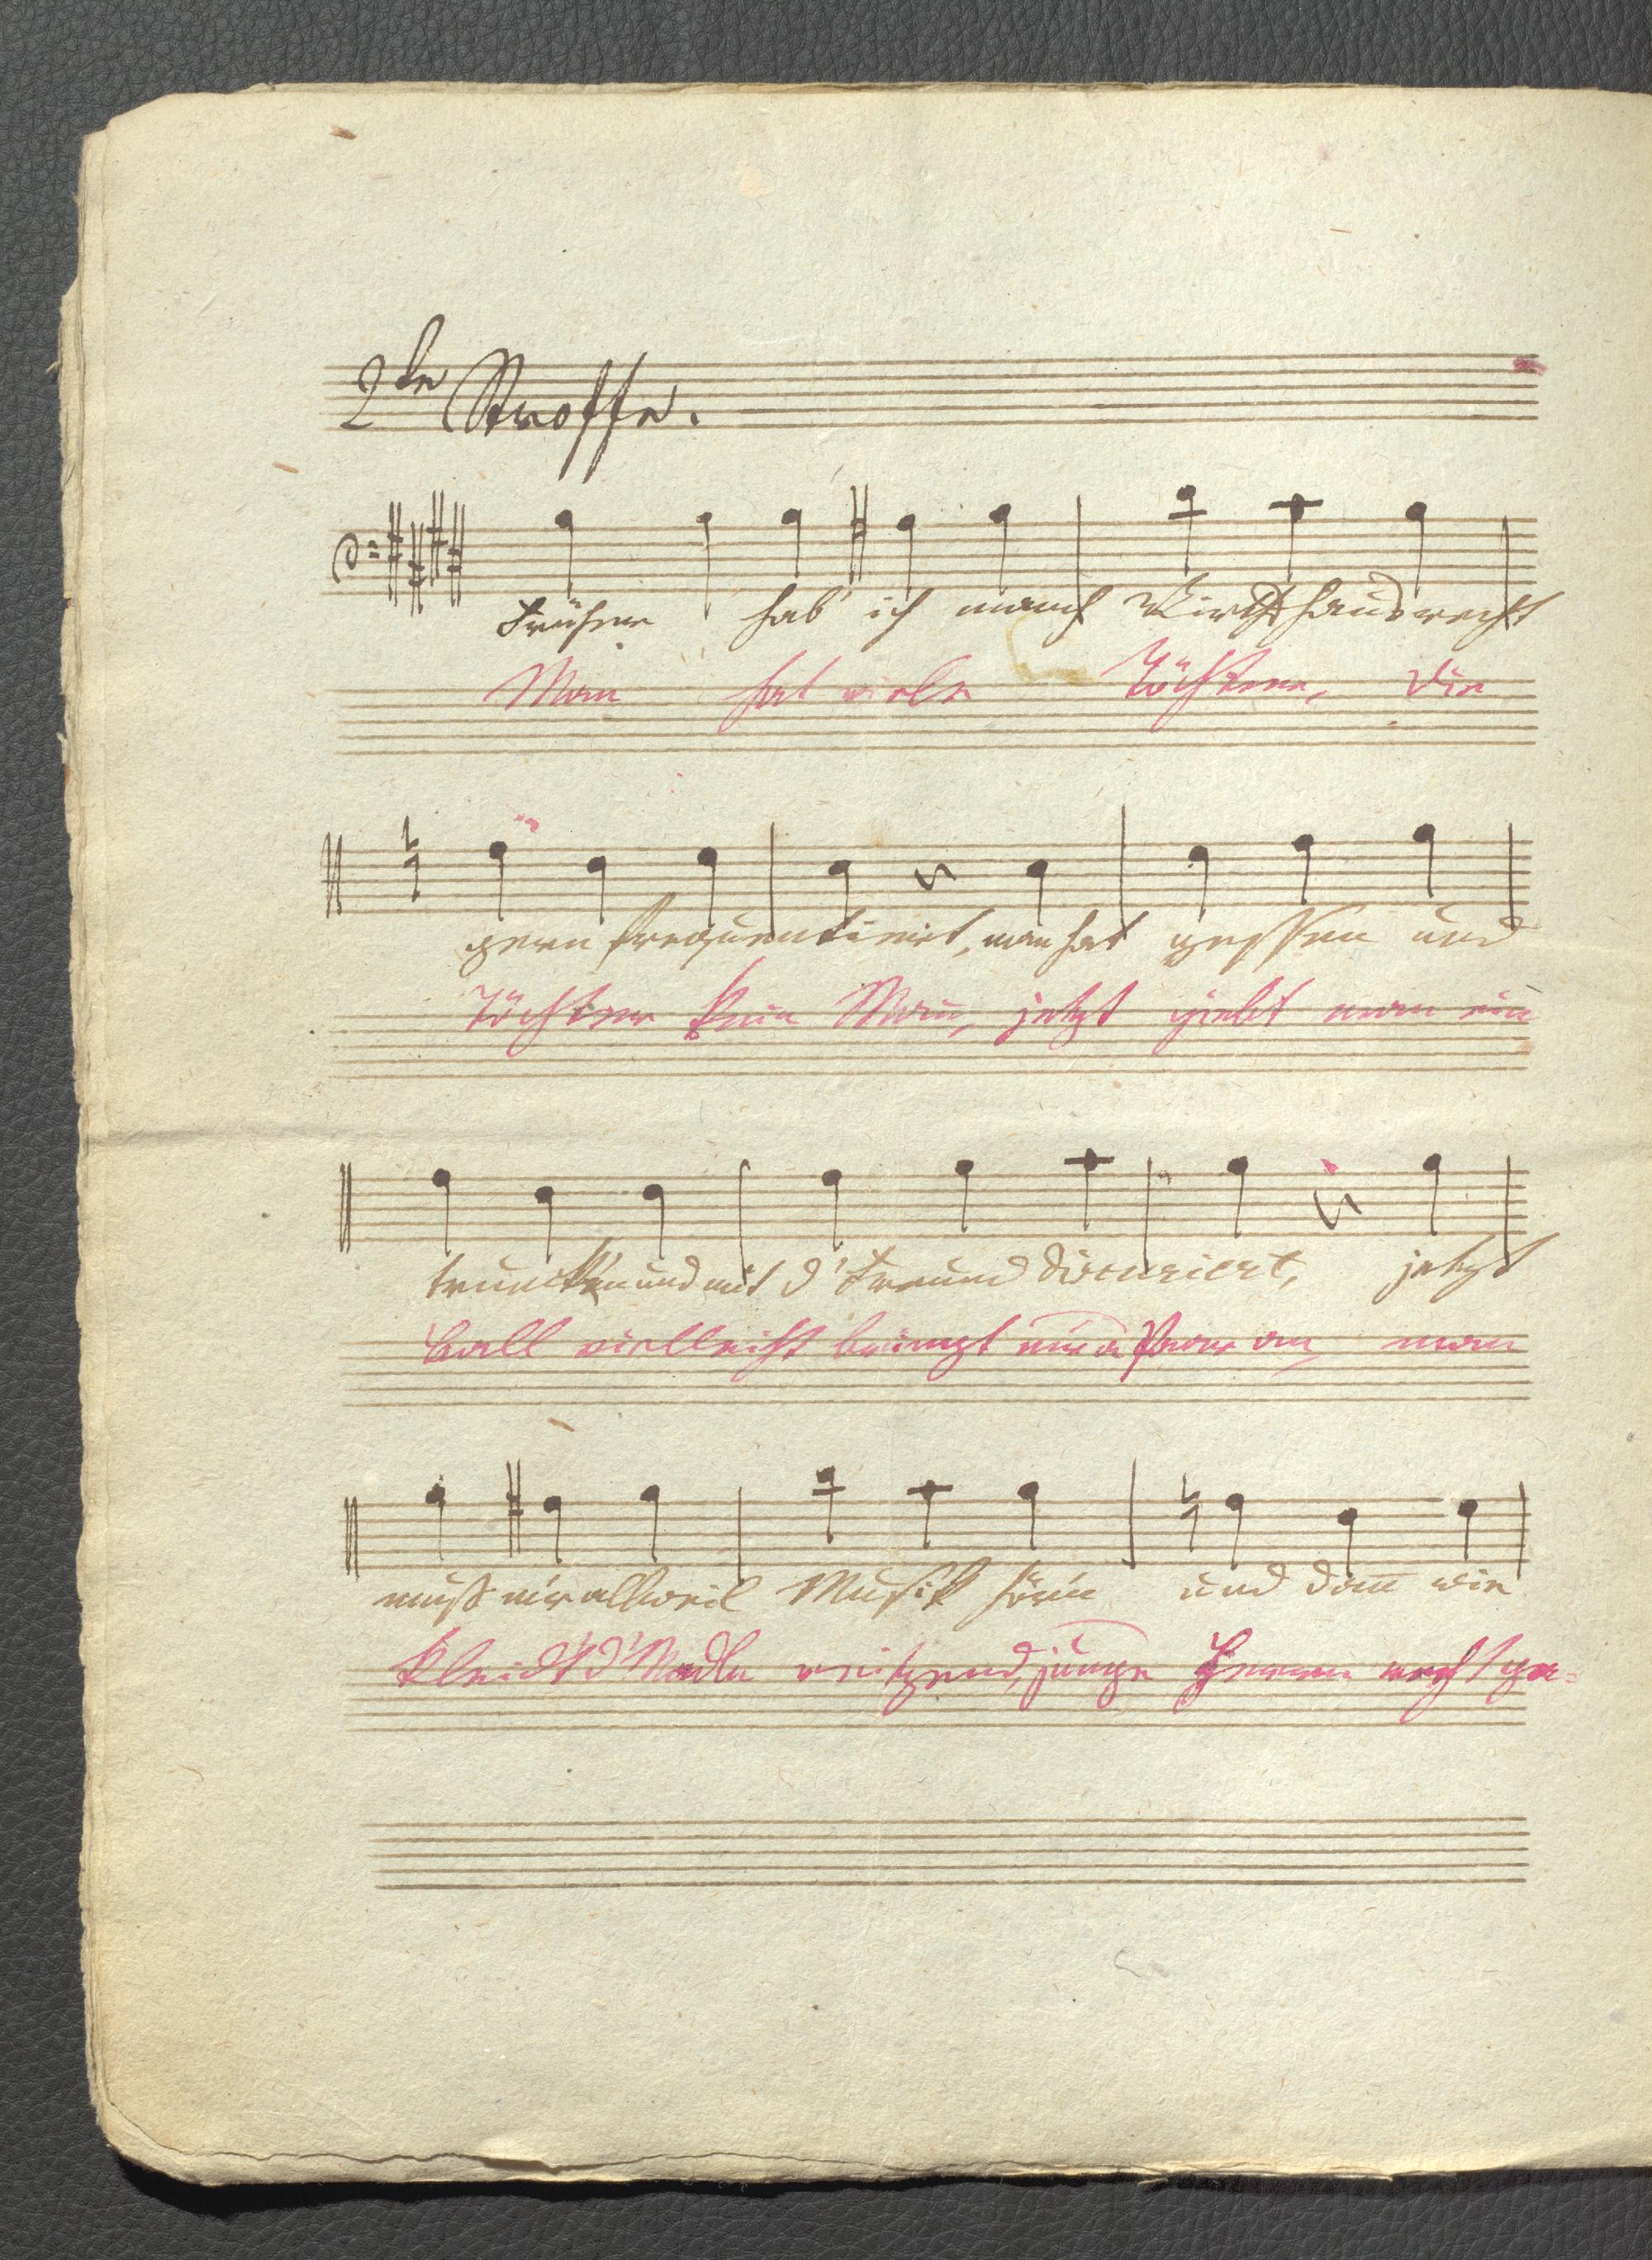 2te Stroffe.
Früher hab' ich manch Wirthshaus recht
Man hat viele Töchter, die
gern frequentiert, man hat gessen und
Töchter kein Mañ, jetzt giebt man ein
trunken und mit d' Freund discuriert, jetzt
Ball vielleicht beimgt ein a Paar an, man
muß mir allweil Musik hör'n und dañ wie
kleid't d' Madln reitzend, junge Herren recht ge-